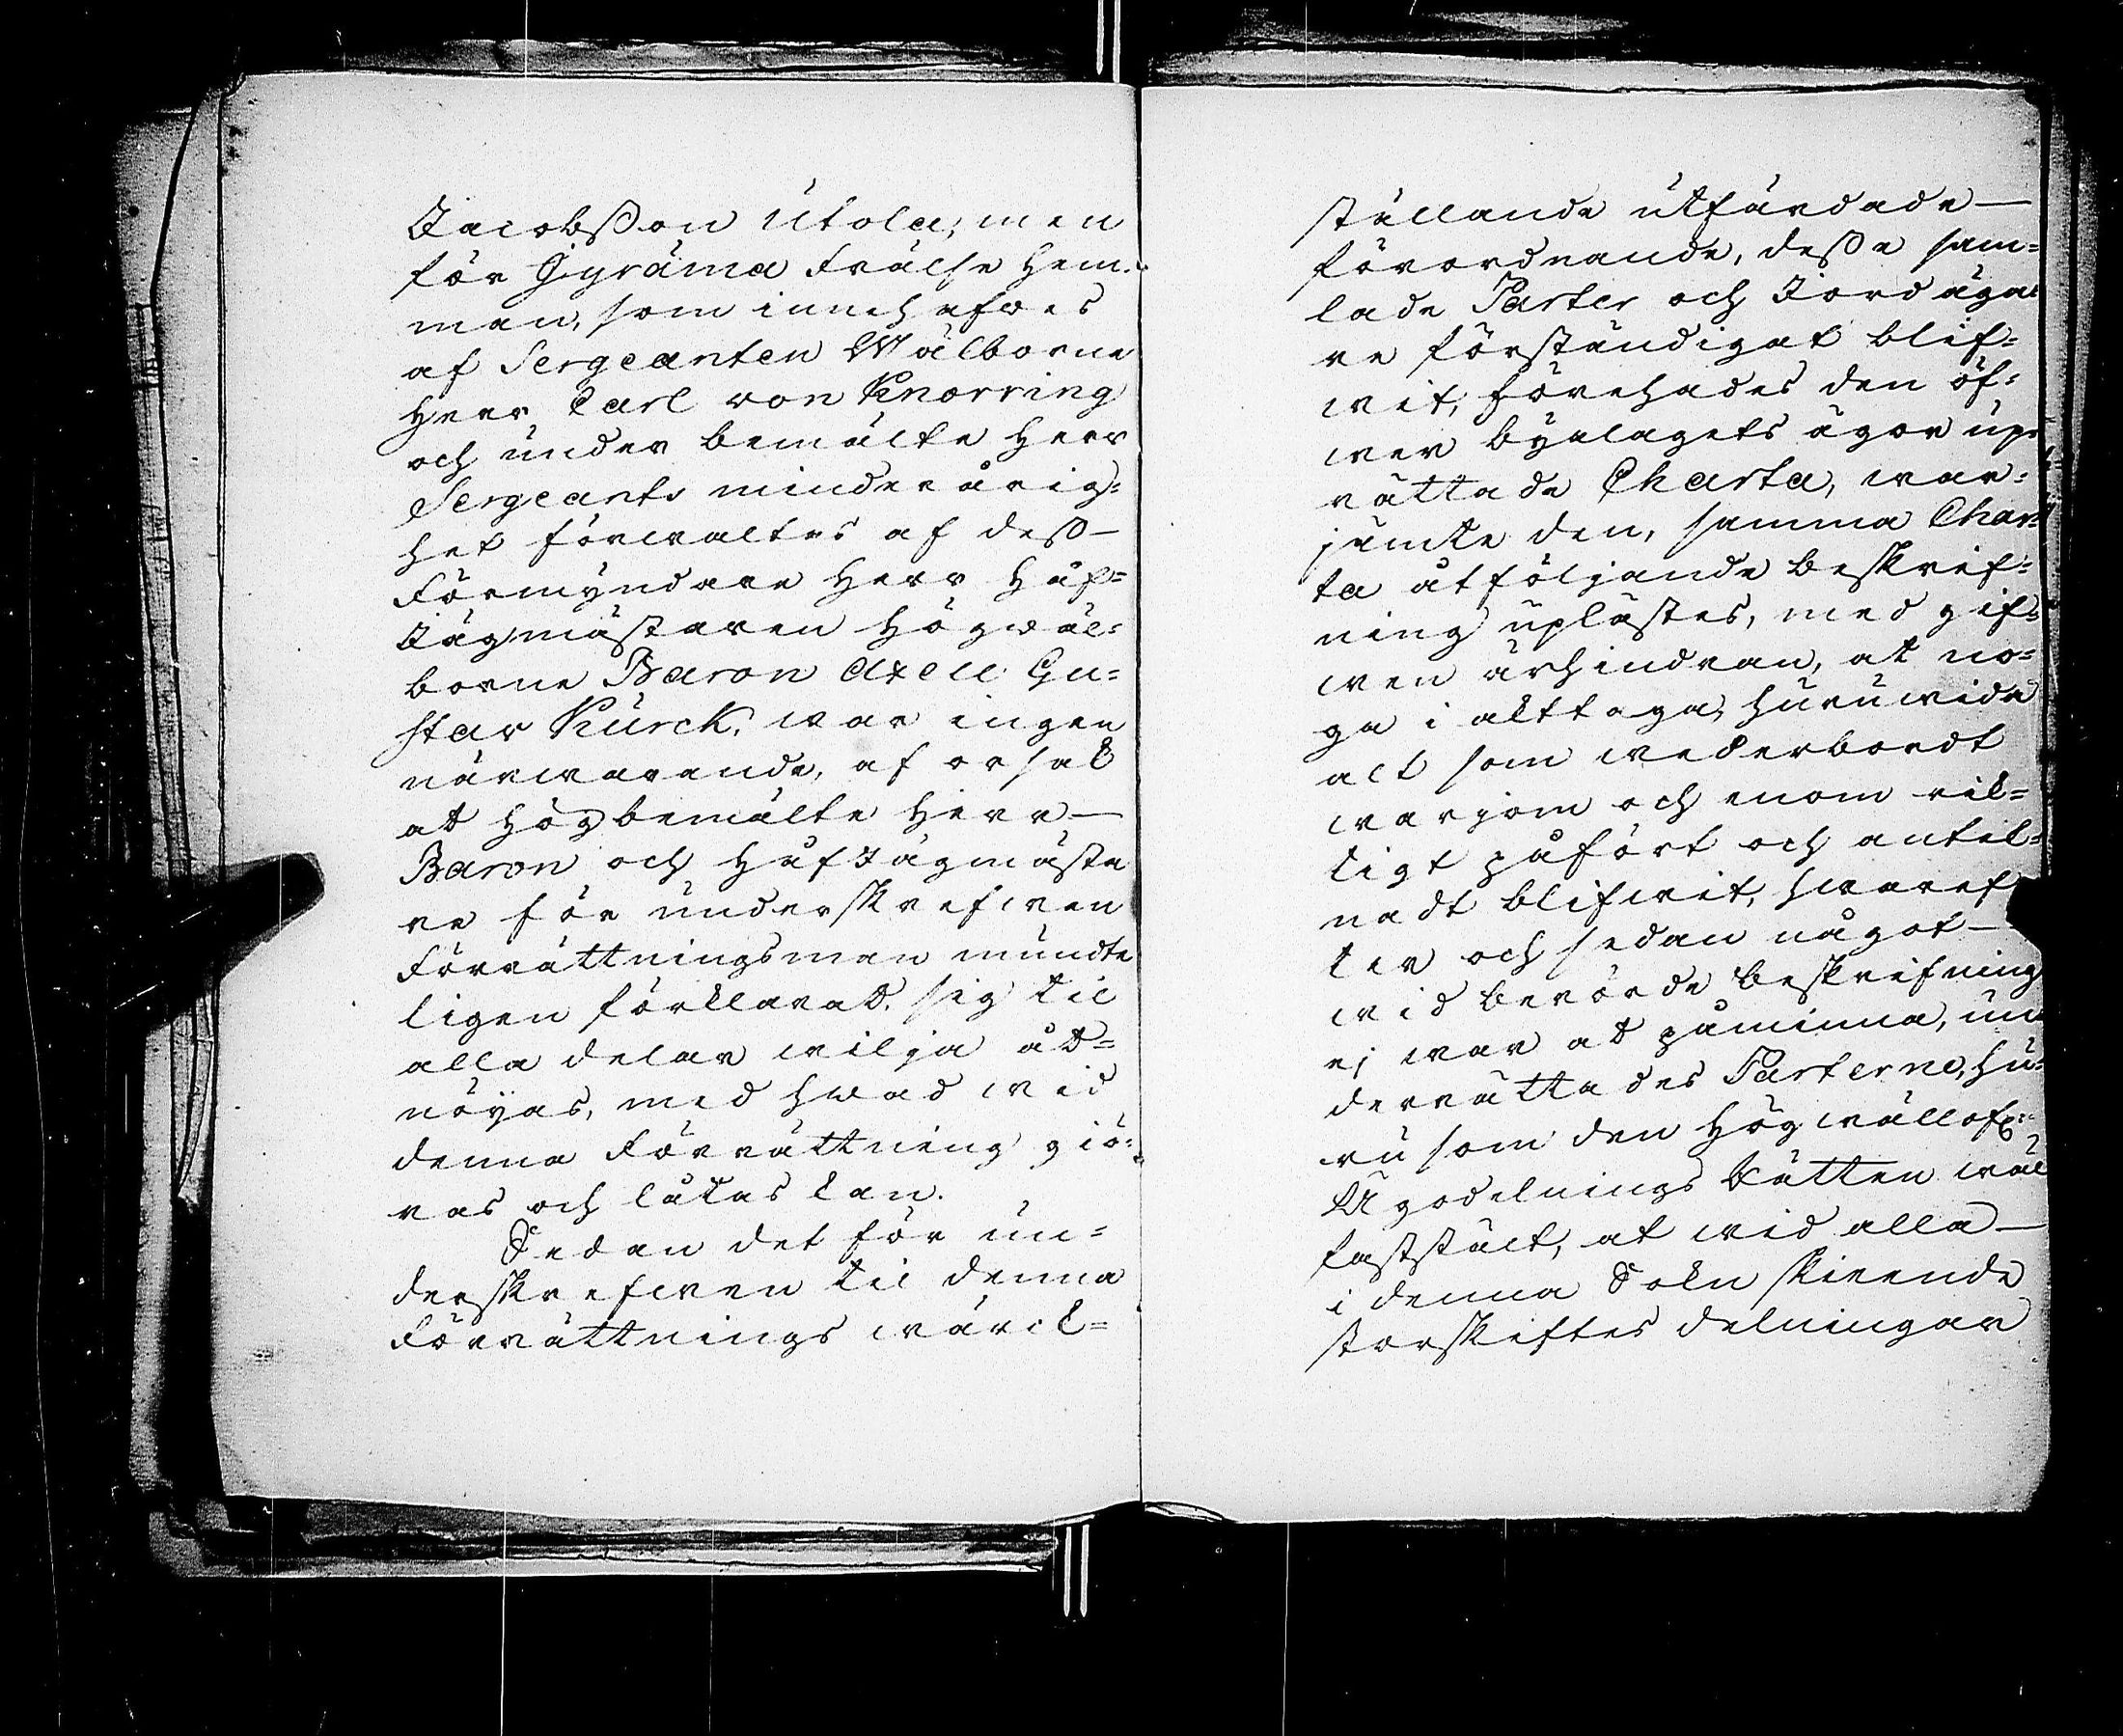 Jacobsson Utola; men
för Gyräma Frälse Hem=
man, som innehafwes
af Sergeanten Wälborne
Herr Carl von Knorring
och under bemälte Herr
Sergeants minderårig=
het förwaltes af dess—
Förmyndare Herr Håf=
Jägmästaren Högwäl=
borne Baron Axell Gu=
stav Kurck, war ingen
närwarande, af orsak
at Högbemälte Herr—
Baron och HåfJägmästa
re för underskrefwen
Förrättningsman mundte
ligen förklarat sig til
alla delar wilja åt=
nöyas, med hwad wid
denna Förrättning giö=
ras och låtas kan.
Sedan det för un=
derskrefwen til denna
Förrättnings wärck=
ställande utfärdade—
förordnande, desse sam=
lade Parter och Jordäga
re förständigat blif=
wit, förehades den öf=
wer byalagets ägor up=
rättade Charta, war=
jämte den, samma Char=
ta åtföljande beskrif=
ning uplästes, med gif=
wen århindran, at no=
ga i akttaga, huruwida
alt som wederbordt
warjom och enom rik=
tigt påfört och antek=
nadt blifwit, hwaref
ter och sedan något—
wid berörde beskrifning
ej war at påminna, un
derrättades Parterne, hu=
ru som den Högwällofl:
Ägodelnings Rätten wäl
faststält, at wid alla—
i denna Sokn skieende
storskiftes delningar